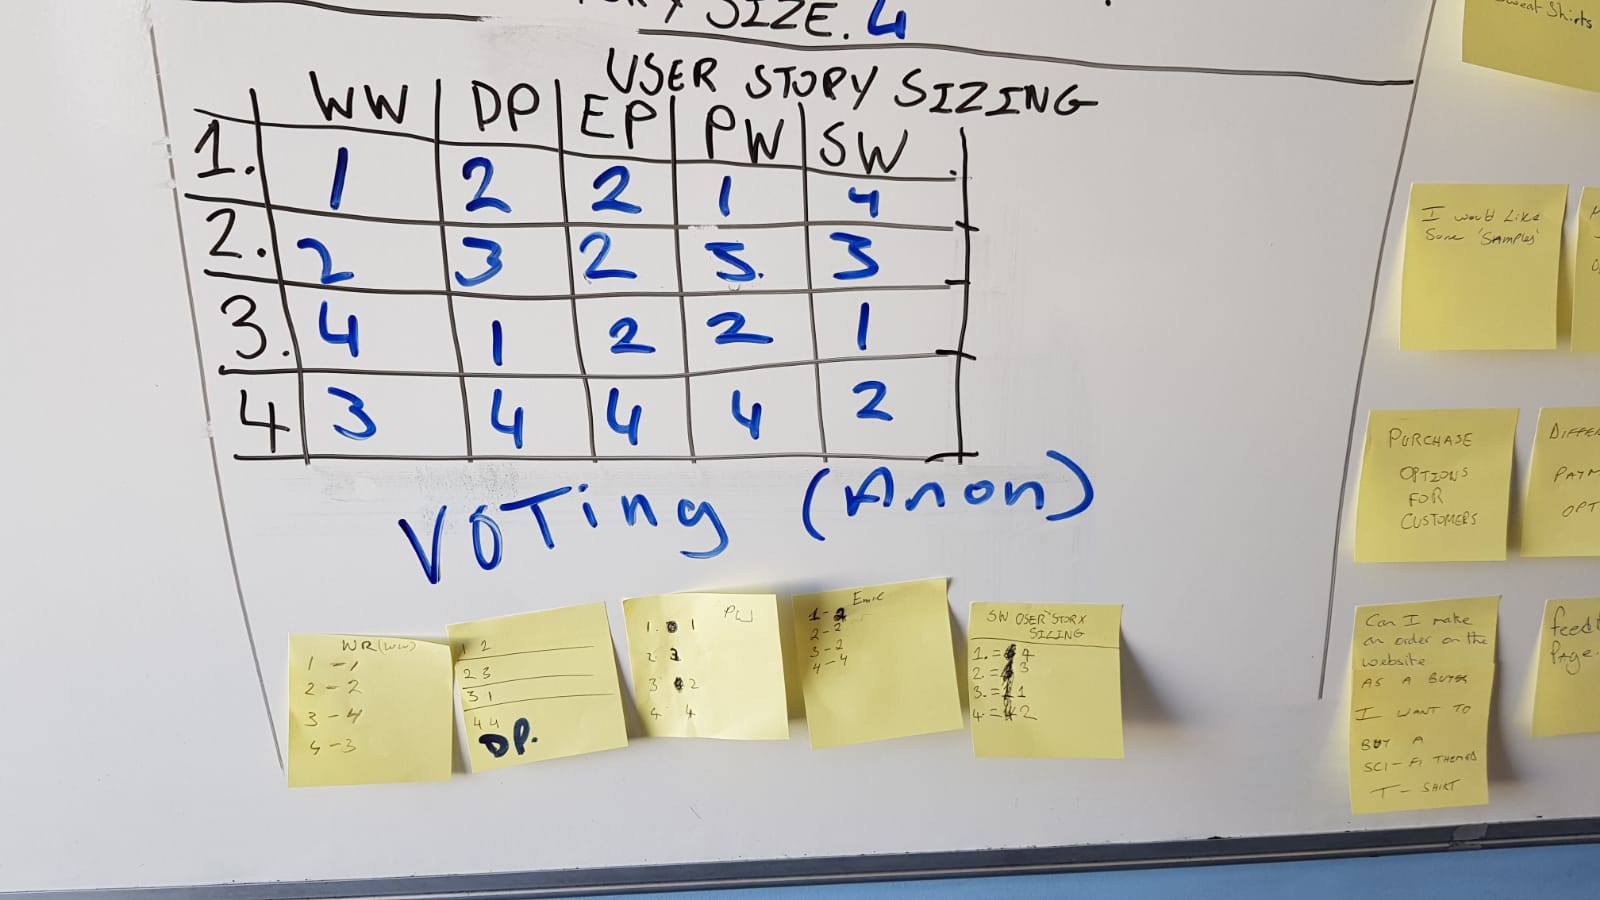 SIZE. 4
USER STORY SIZING
WW DP EP PW SW
1. 1 2 2 1 4
2. 2 3 2 3. 3
3. 4 1 2 2 1
4 3 4 4 4 2
VOTing (Anon)
WR(WW)
1 - 1
2 - 2
3 - 4
4 - 3
1 2
2 3
3 1
4 4
DP.
PW
1. 1
2 3
3 2
4 4
Emil
1 - 2
2 - 2
3 - 2
4 - 4
SW USER STORY
SIZING
1. = 4
2. = 3
3. = 1
4. = 2
Sweat Shirts
I would Like
Some 'SAMPles'
PURCHASE
OPTIONS
FOR
CUSTOMERS
DIFFE
PAYM
OPT
Can I make
an order on the
website
AS A BUYER
I WANT TO
BUY A
SCI-FI THEMED
T-SHIRT
feed
Page.